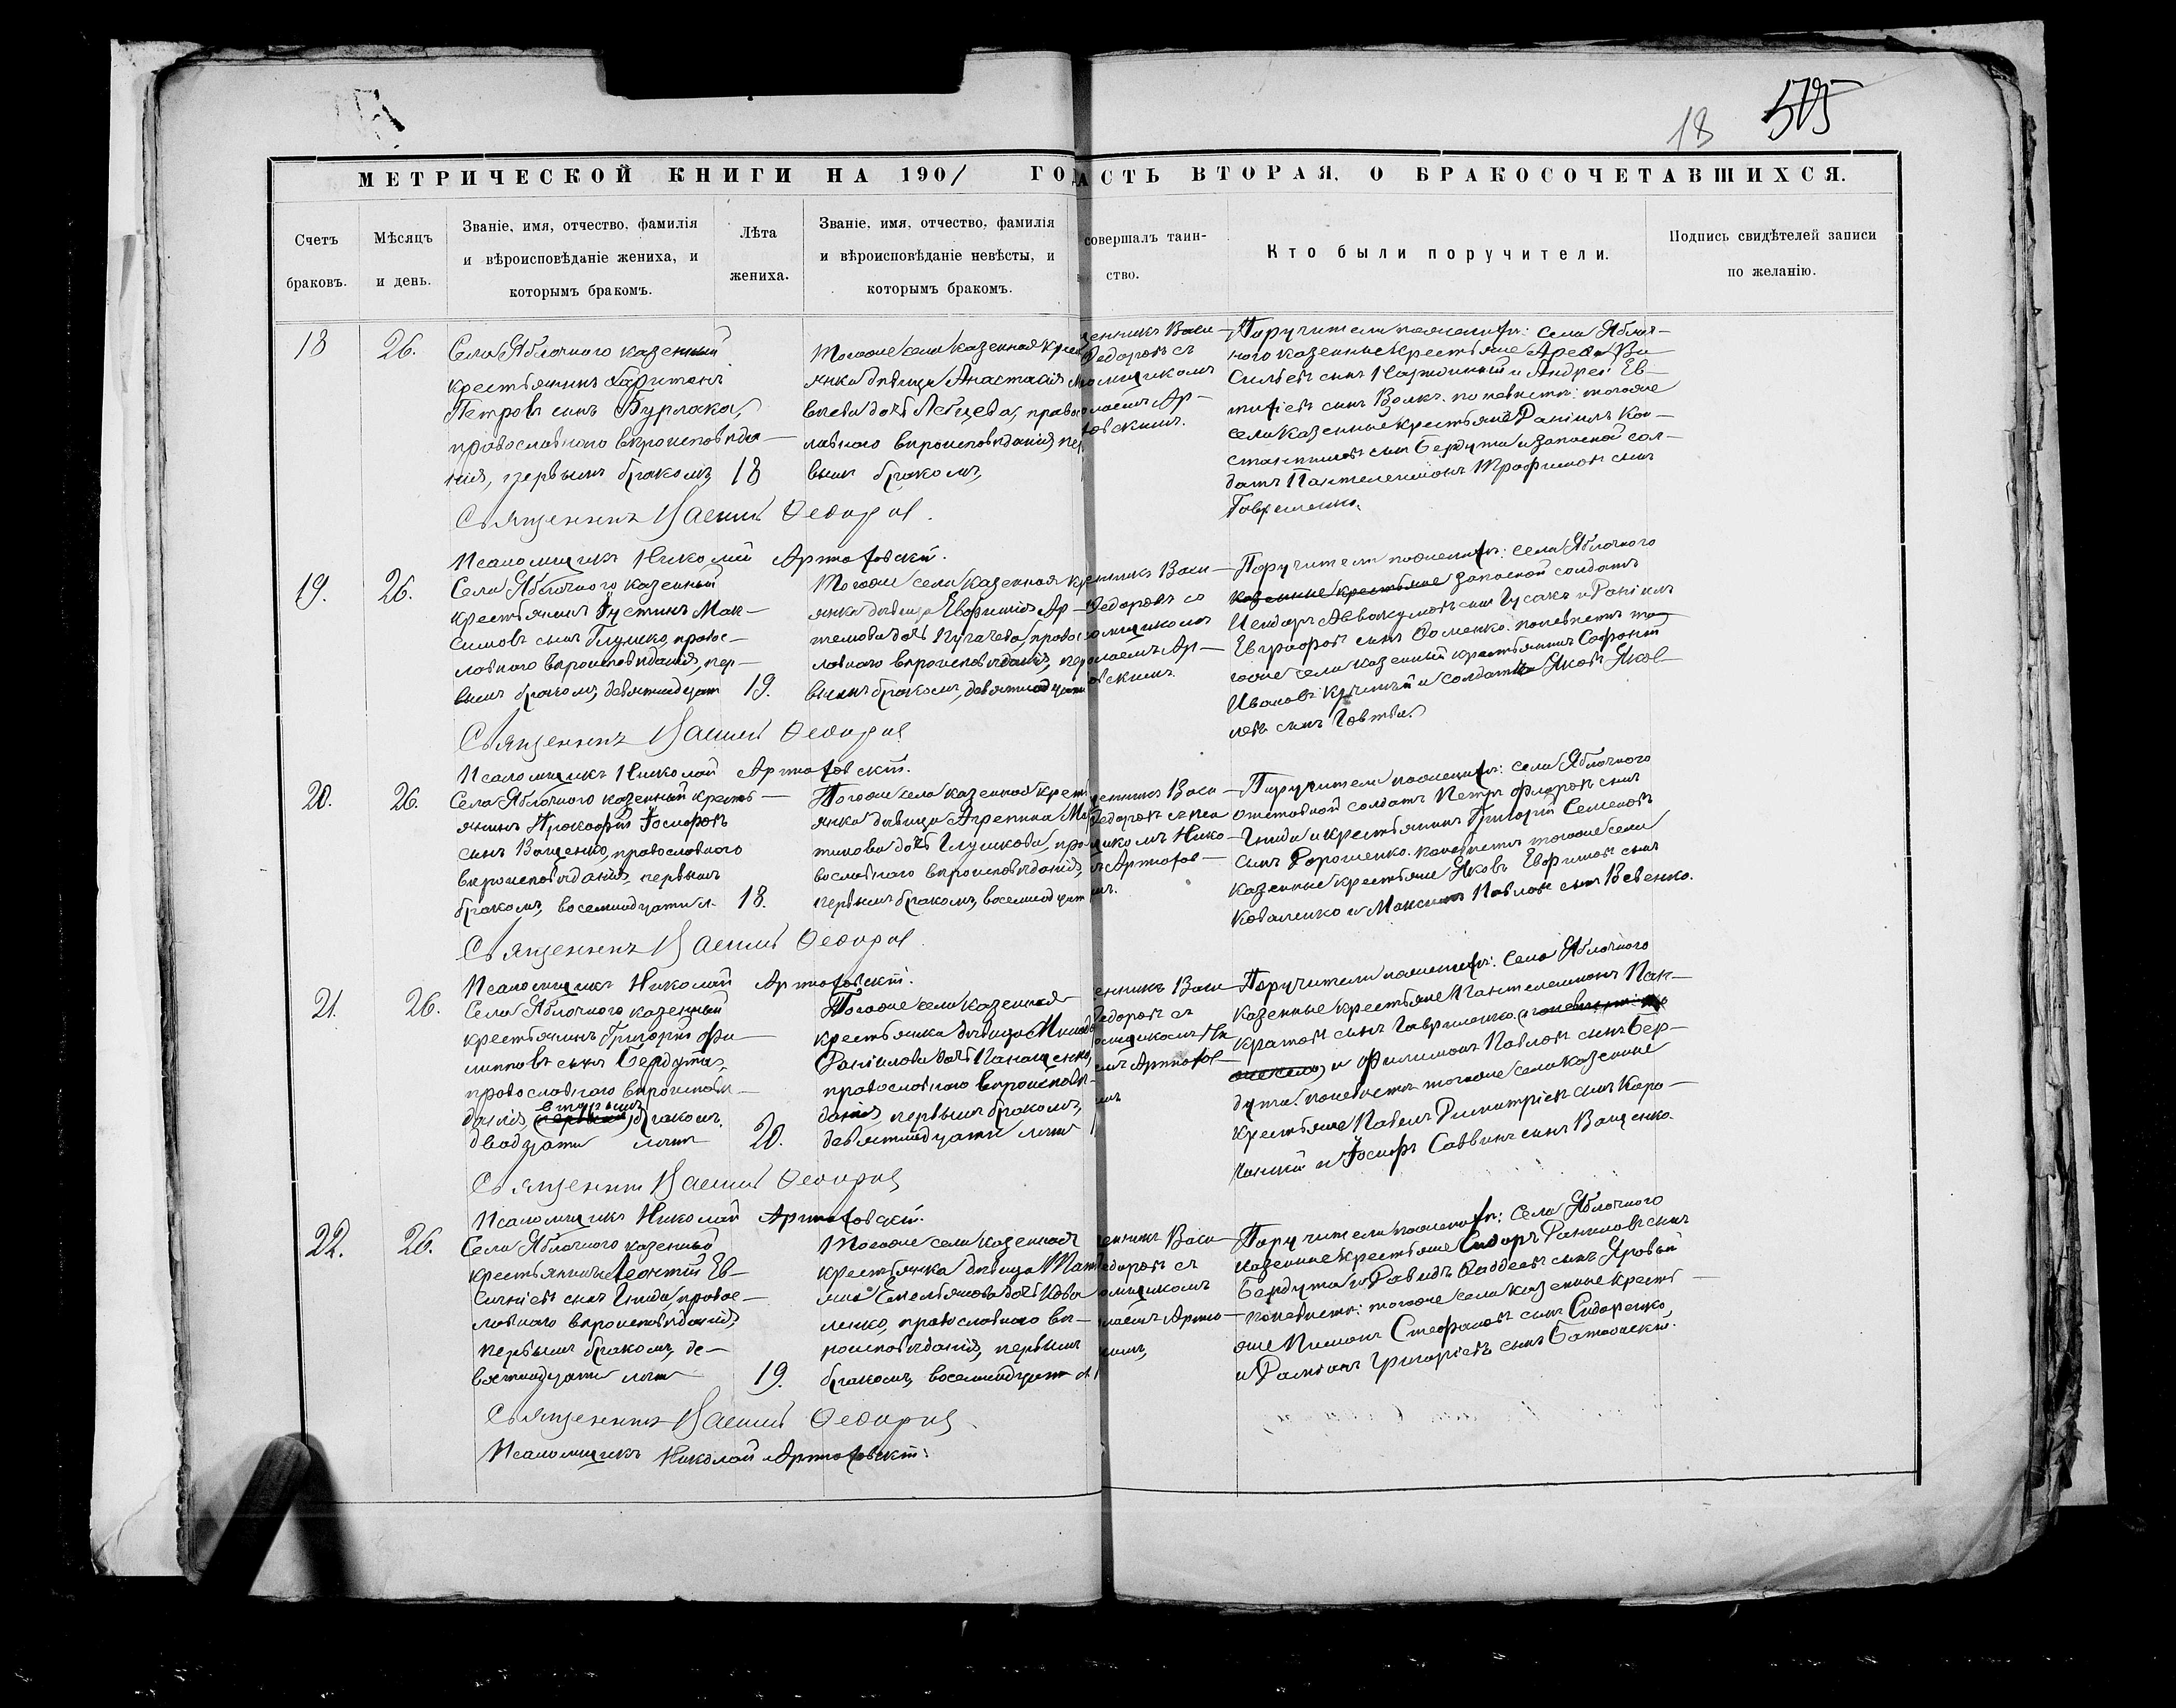 18 575
МЕТРИЧЕСКОЙ КНИГИ НА 1901 ГО
АСТЬ ВТОРАЯ, О БРАКОСОЧЕТАВШИХСЯ.
Счетъ
браковъ.
Мѣсяцъ
и день.
Званіе, имя, отчество, фамилія
и вѣроисповѣданіе жениха, и
которымъ бракомъ.
Лѣта
жениха.
Званіе, имя, отчество, фамилія
и вѣроисповѣданіе невѣсты, и
которымъ бракомъ.
совершалъ таин-
ство.
Кто были поручители.
Подпись свидѣтелей записи
по желанію.
18
26.
Села Яблочного казенный
крестьянинъ Харитонъ
Петровъ сынъ Бурлака,
православнаго вѣроисповѣда-
нія, первымъ бракомъ,
18
Тогоже села казенная крес
янка дѣвица Анастасія
вьева дочь Лебедева, правос
лавнаго вѣроисповѣданія, пер
вымъ бракомъ,
щенникъ Васи-
Ѳедоровъ съ
омщикомъ
олаемъ Ар-
овскимъ.
Поручители по женихѣ: села Яблоч-
ного казенные крестьяне Ва-
сильевъ сынъ и Андрей Ев-
сынъ Волкъ. по невѣстѣ: тогоже
села казенные крестьяне Даніилъ Кон-
стантиновъ сынъ Бердута и запасной сол-
датъ Пантелеимонъ Трофимовъ сынъ
Гавриленко.
Священникъ Василій Ѳедоровъ
Псаломщикъ Николай Артюховскій.
19.
26.
Села Яблочного казенный
крестьянинъ Іустинъ Мак-
симовъ сынъ Глушко, правос-
лавнаго вѣроисповѣданія, пер-
вымъ бракомъ, девятнадцати
19.
Тогоже села казенная кр
янка дѣвица Евфимія Ар-
темова дочь Пугачева, правос
лавнаго вѣроисповѣданія, пер
вымъ бракомъ, девятнадцати
щенникъ Васи-
Ѳедоровъ съ
омщикомъ
олаемъ Ар-
овскимъ.
Поручители по женихѣ: села Яблочного
казенные крестьяне запасной солдатъ
Исидоръ Аввакумовъ сынъ Гусакъ и Даніилъ
Евграфовъ сынъ Ѳоменко. по невѣстѣ то-
гоже села казенный крестьянинъ Софоній
Ивановъ и солдатъ Яковъ Яков-
левъ сынъ Говтва.
Священникъ Василій Ѳедоровъ
Псаломщикъ Николай Артюховскій.
20.
26.
Села Яблочного казенный кресть-
янинъ Прокофій Іосифовъ
сынъ Ващенко, православнаго
вѣроисповѣданія, первымъ
бракомъ, восемнадцати л.
18.
Тогоже села казенная крест
янка дѣвица Агрепина Ма
тинова дочь Глушкова, пра
вославнаго вѣроисповѣданія,
первымъ бракомъ, восемнадцати
щенникъ Васи-
Ѳедоровъ съ пса
щикомъ Нико-
ъ Артюхов-
имъ.
Поручители по женихѣ: села Яблочного
отставной солдатъ Петръ Флоровъ сынъ
Гнида и крестьянинъ Григорій Семеновъ
сынъ Дорошенко. по невѣстѣ тогоже села
казенные крестьяне Яковъ Евфимовъ сынъ
Коваленко и Максимъ Павловъ сынъ Кевенко.
Священникъ Василій Ѳедоровъ
Псаломщикъ Николай Артюховскій.
21.
26.
Села Яблочного казенный
крестьянинъ Григорій Фи-
липповъ сынъ Бердута,
православнаго вѣроисповѣ-
вторымъ
данія, (первымъ) бракомъ,
двадцати лѣтъ
20.
Тогоже села казенная
крестьянка дѣвица
Даніилова дочь Панащенко,
православнаго вѣроисповѣ-
данія, первымъ бракомъ,
девятнадцати лѣтъ
енникъ Васи-
Ѳедоровъ съ
омщикомъ Ни
емъ Артюхов-
имъ
Поручители по женихѣ: села Яблочного
казенные крестьяне Пантелеимонъ Пан-
кратовъ сынъ Гавриленко
и Филимонъ Павловъ сынъ Бер-
дута. по невѣстѣ тогоже села казенные
крестьяне Павелъ Димитріевъ сынъ Кара-
и Іосифъ Саввинъ сынъ Ващенко.
Священникъ Василій Ѳедоровъ
Псаломщикъ Николай Артюховскій.
22.
26.
Села Яблочного казенный
крестьянинъ Леонтій Ев-
сынъ Гнида, правос-
лавнаго вѣроисповѣданія,
первымъ бракомъ, де-
вятнадцати лѣтъ
19.
Тогоже села казенная
крестьянка дѣвица Тат
Емельянова дочь Кова
ленко, православнаго вѣ-
роисповѣданія, первымъ
бракомъ, восемнадцати л
енникъ Васи-
Ѳедоровъ съ
омщикомъ
олаемъ Артю-
кимъ,
Поручители по женихѣ: села Яблочного
казенные крестьяне Сидоръ Даніиловъ сынъ
Бердута и Давидъ Ѳаддеевъ сынъ Яровый
по невѣстѣ: тогоже села казенные кресть-
яне Пименъ Стефановъ сынъ Сидоренко,
и Даміанъ Григоріевъ сынъ
Священникъ Василій Ѳедоровъ
Псаломщикъ Николай Артюховскій.